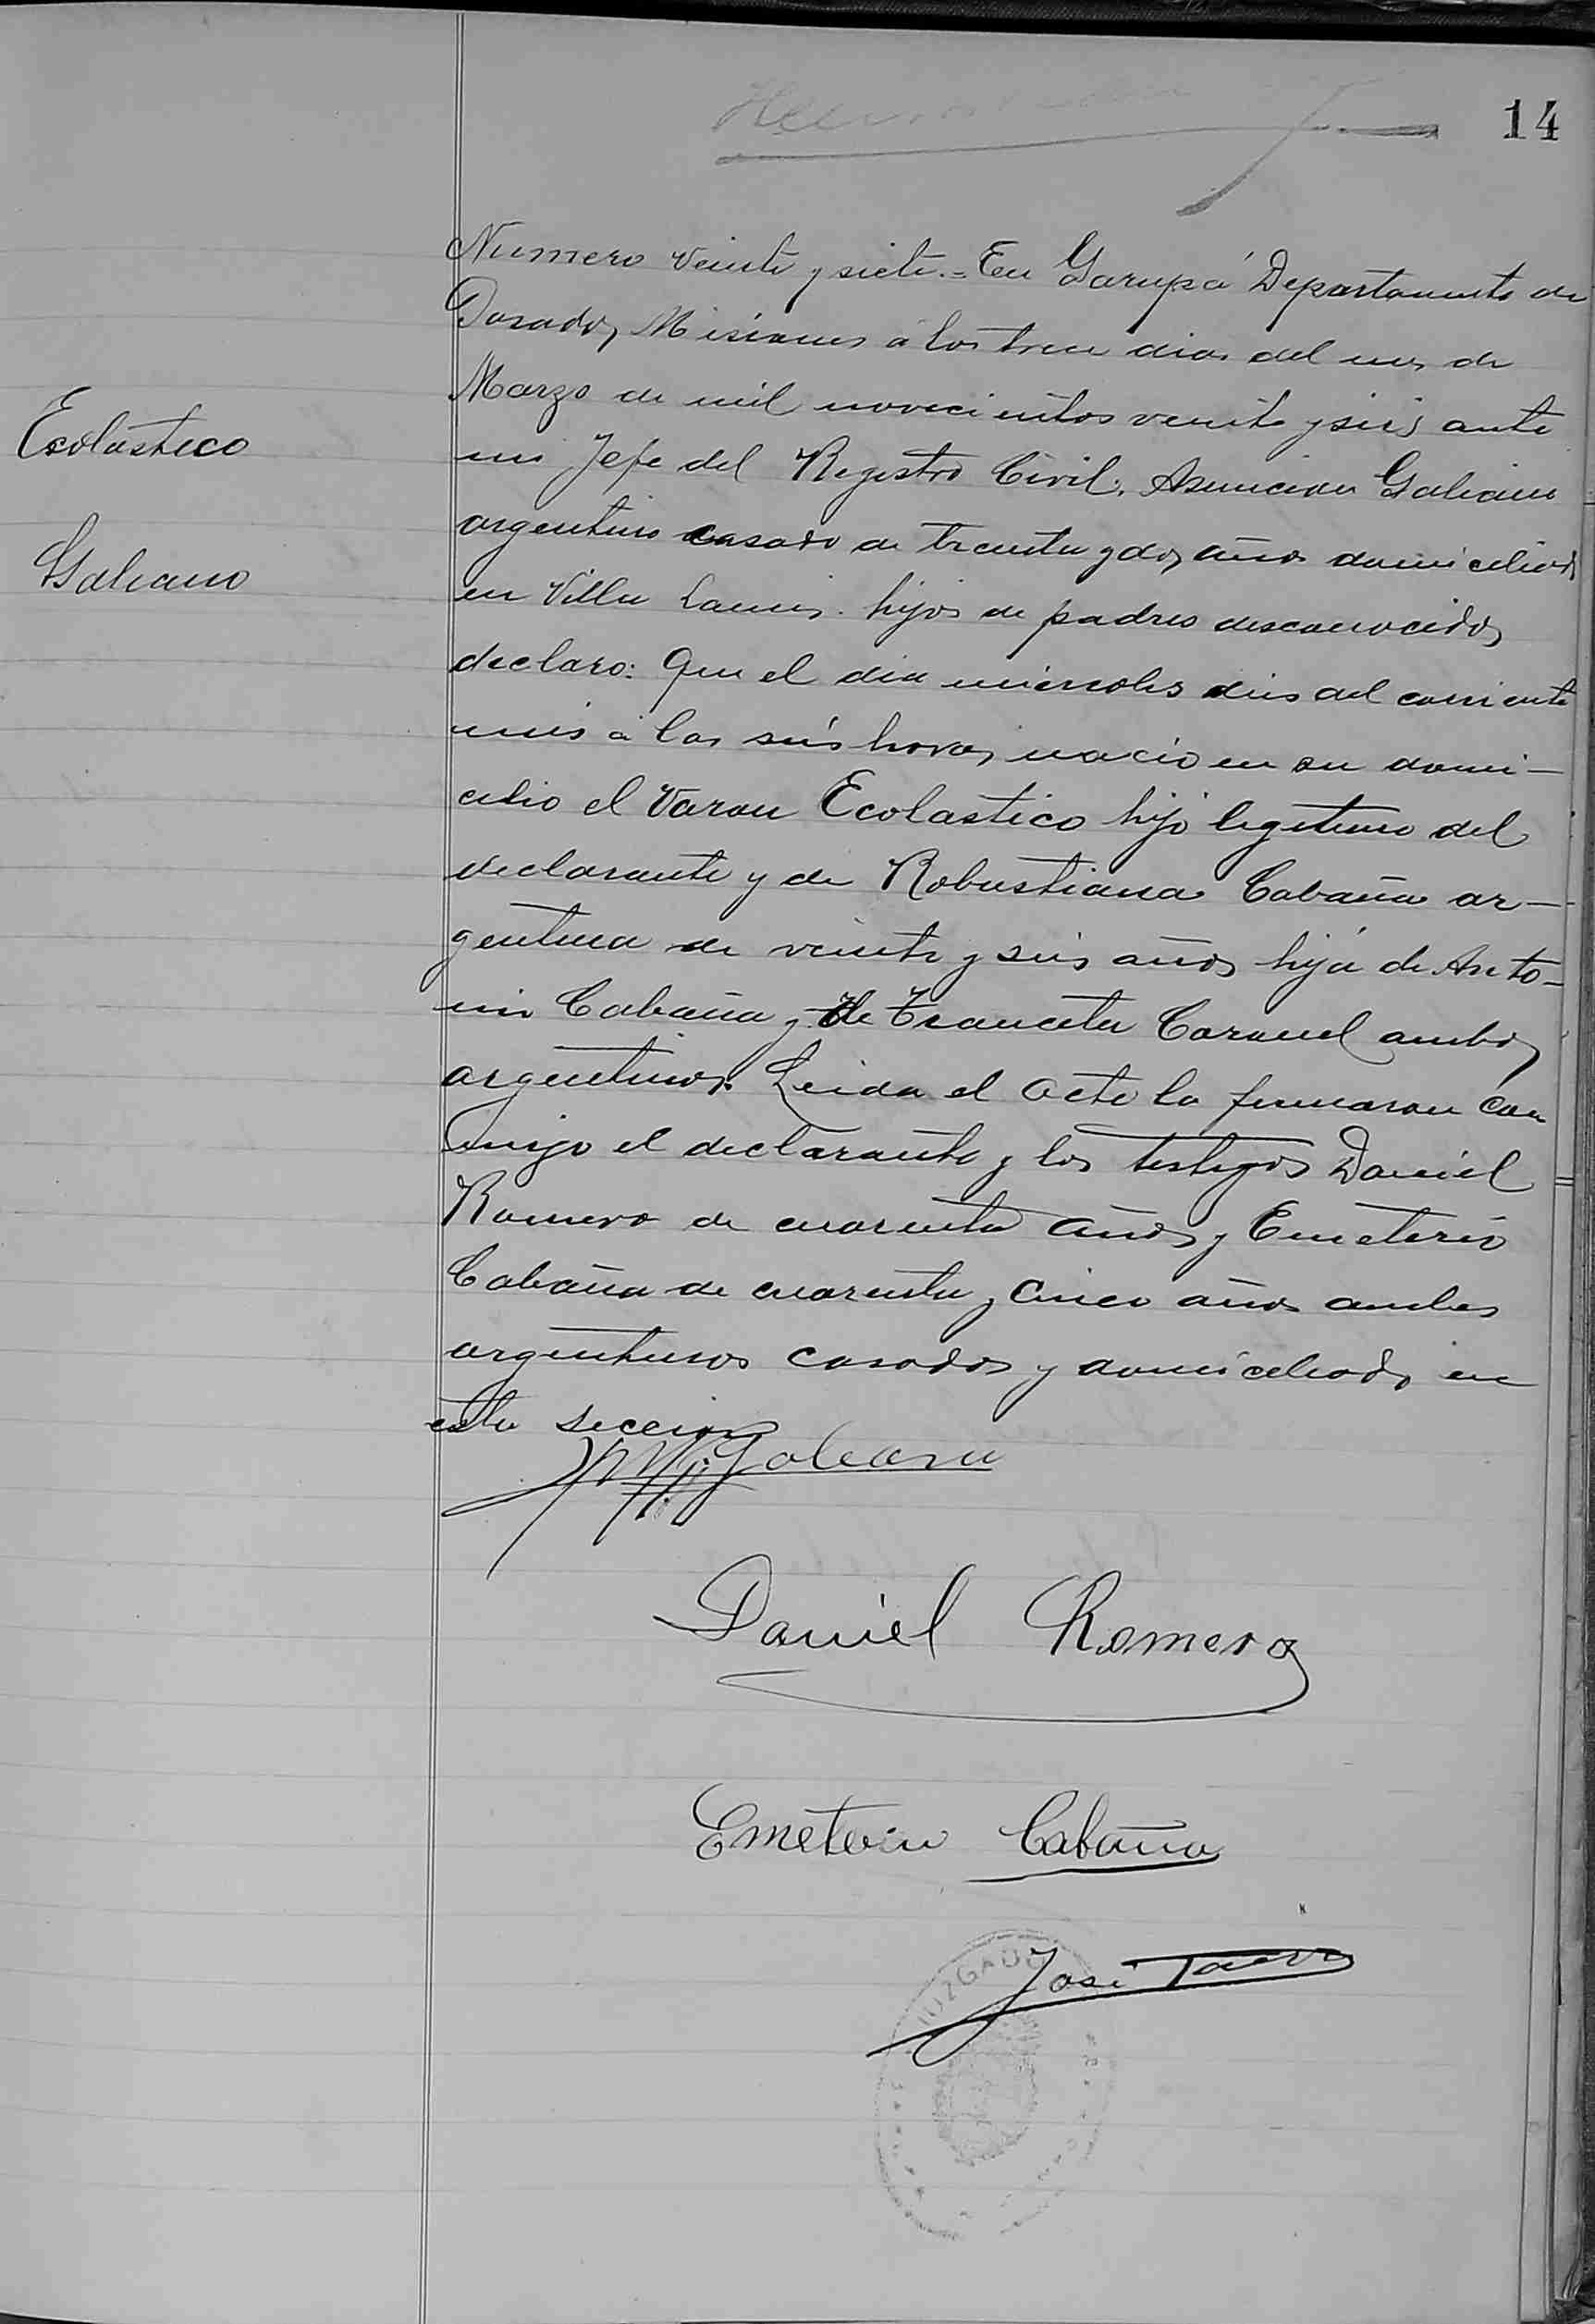 14
Numero veinte y siete.= En Garupá Departamento de
Posadas, Misiones á los trece dias del mes de
Marzo de mil novecientos veinte y seis ante
Escolastico
mi Jefe del Registro Civil, Asuncion Galeano
argentino casado de treinta y dos años domiciliado
Galeano
en Villa Lanus. hijo de padres desconocidos
declaro: Que el dia miercoles dies del corriente
mes á las seis horas, nacio en su domi-
cilio el Varon Ecolastico hijo legitimo del
declarante y de Robustiana Cabaña ar-
gentina de veinte y seis años hija de Anto-
nio Cabaña y de Trancita Coronel ambos
argentinos. Leida el acta la firmaron con
migo el declarante y los testigos Daniel
Romero de cuarenta años y Emeterio
Cabaña de cuarenta y cinco años ambos
argentinos casados y domiciliados en
esta seccion
Galeano
Daniel Romero
Emeterio Cabaña
José
JUZGADO